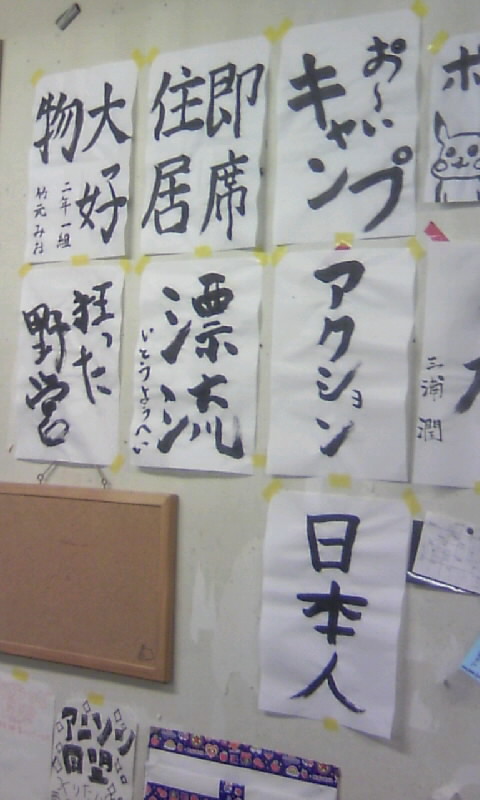 ポ
お〜い
キャンプ
即席
住居
大好
物
二年一組
竹元みお
三浦潤
アクション
漂流
いとうようへい
狂った
野営
日本人
アニソン
同盟